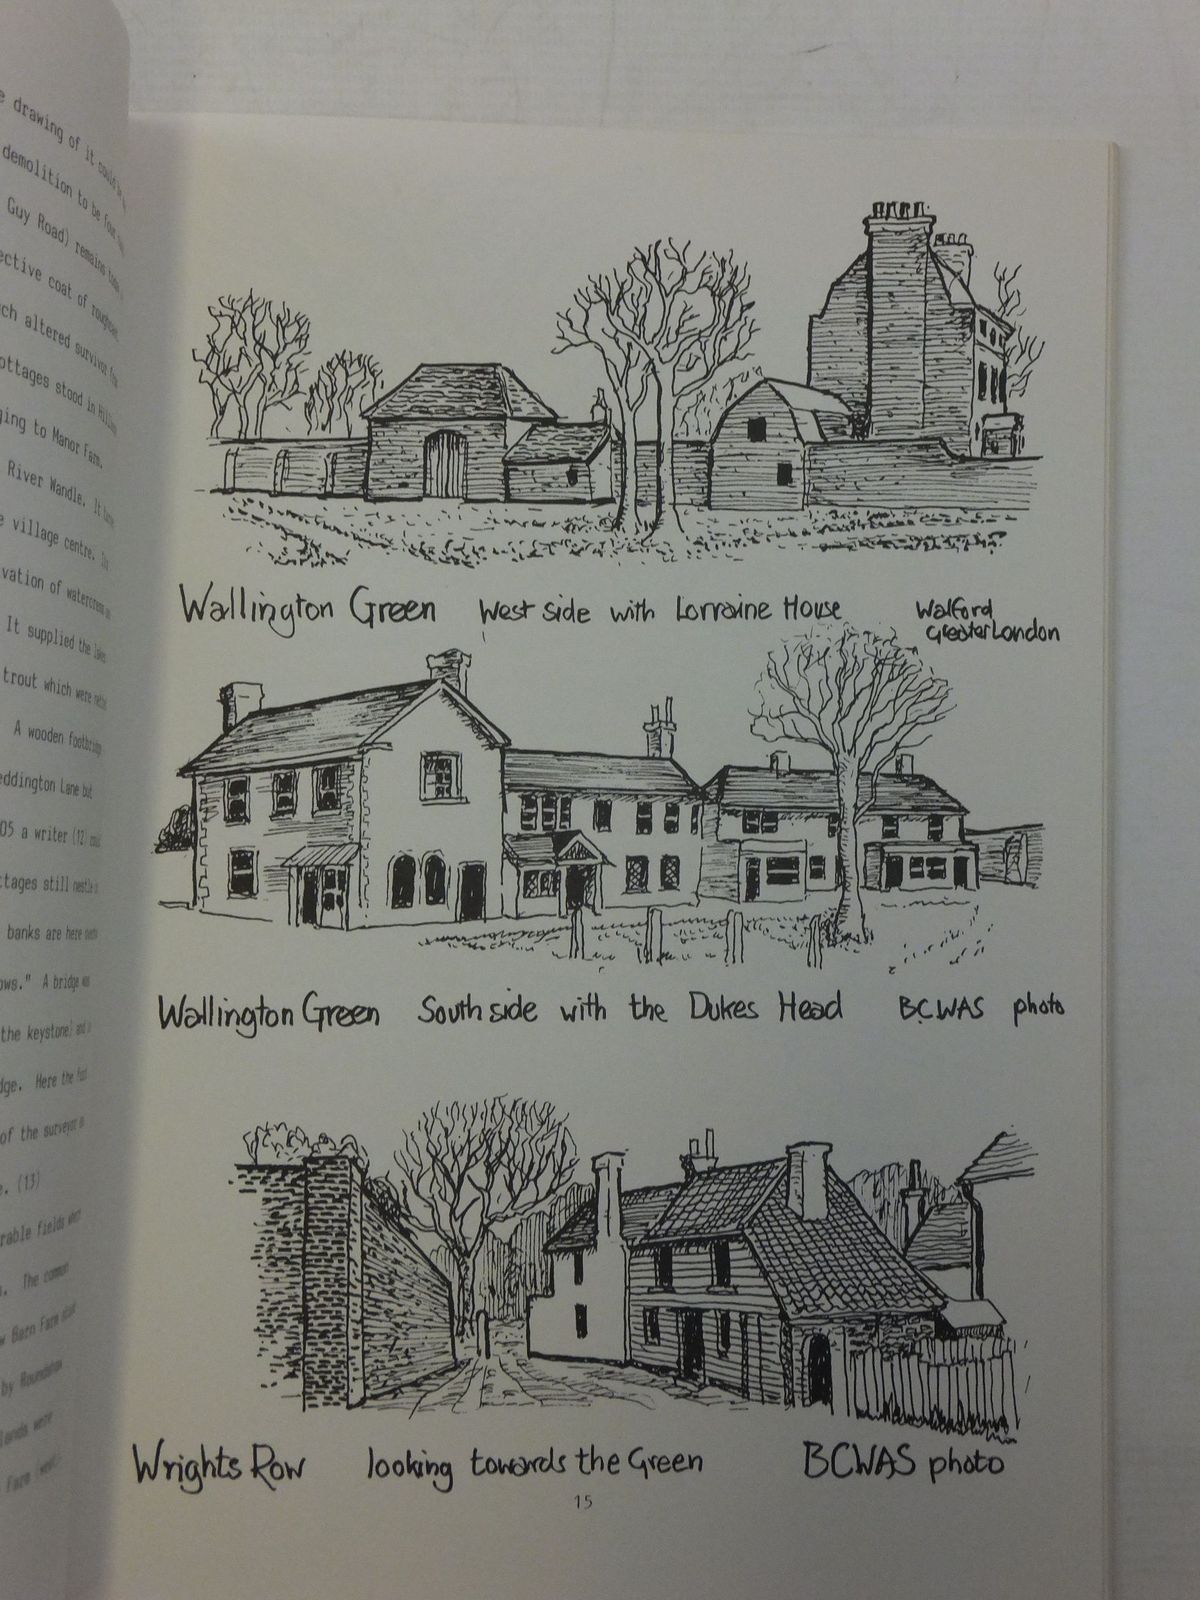 e drawing of it could be
demolition to be four
Guy Road) remains
ective coat of
ch altered survivor
ottages stood in
ging to Manor Farm.
River Wandle. It
e village centre.
vation of watercress
It supplied the lakes
trout which were
A wooden footbridge
eddington Lane but
05 a writer (12)
ttages still nestle
banks are here
ows." A bridge was
the keystone) and
dge. Here the
of the surveyor
e. (13)
rable fields
The common
w Barn Farm
by Roundshaw
lands were
Farm
Wallington Green West side with Lorraine House Walford
Greater London
Wallington Green South side with the Dukes Head BCWAS photo
Wrights Row looking towards the Green BCWAS photo
15